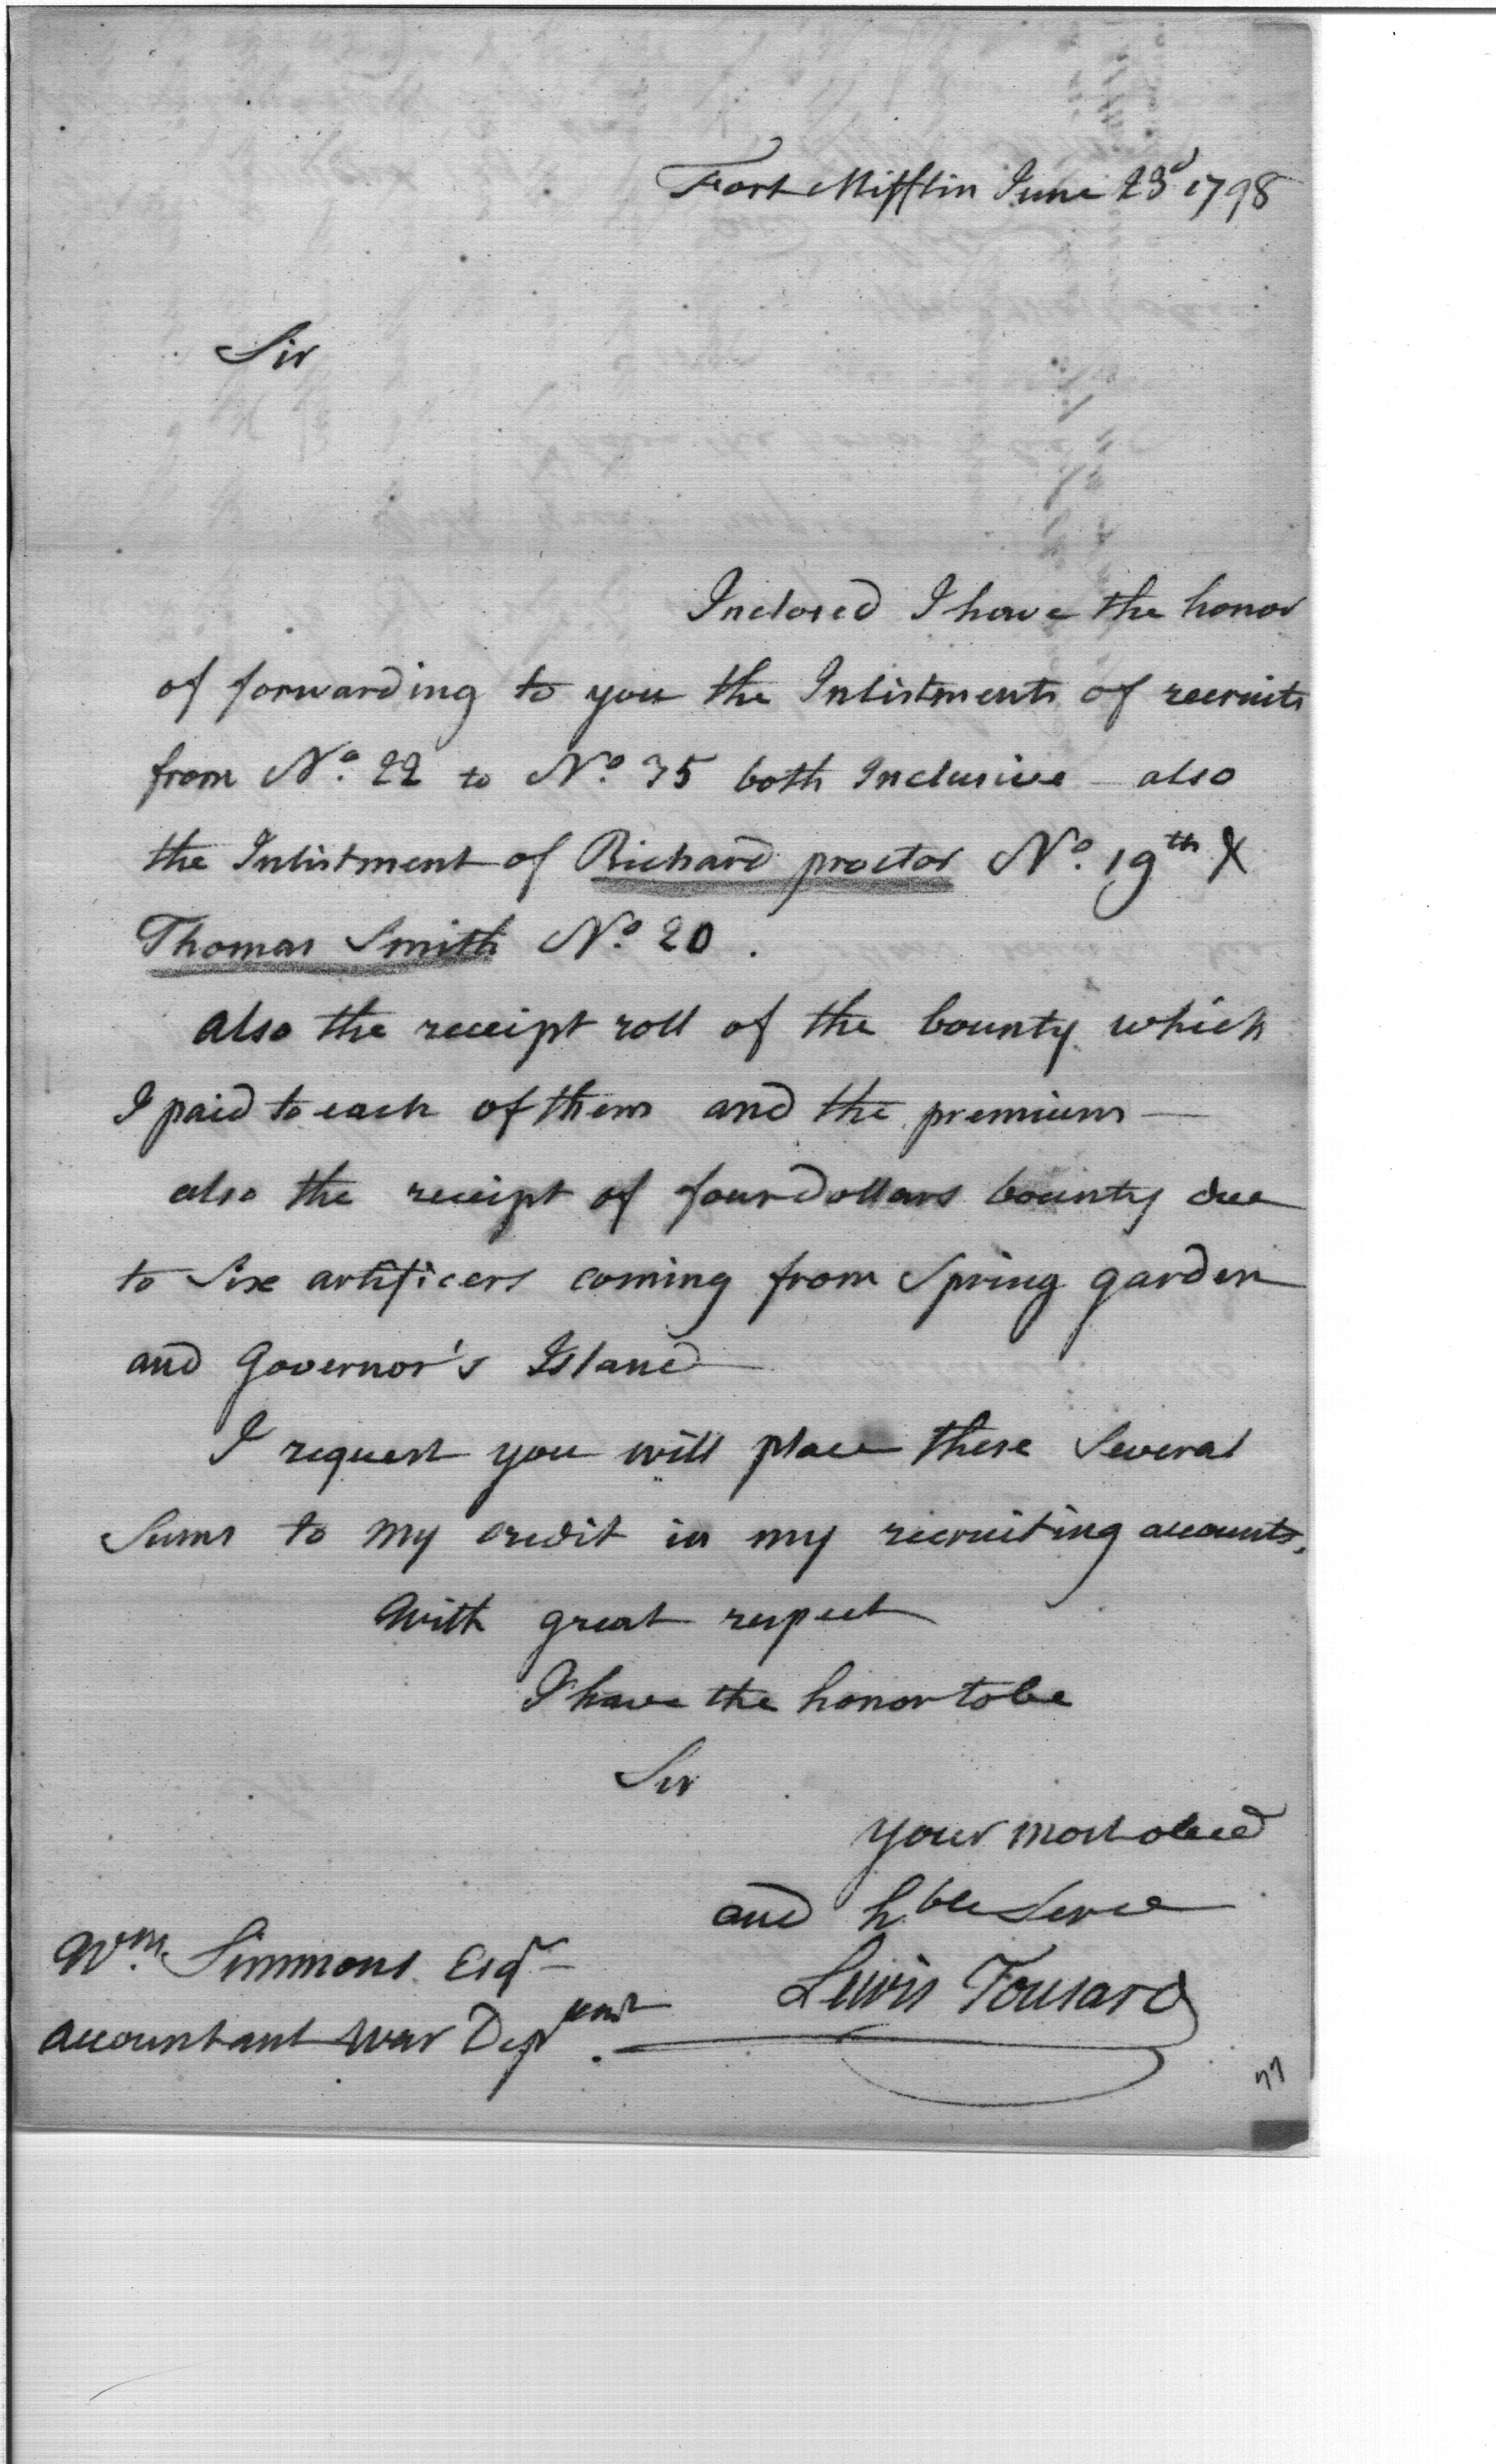 Fort Mifflin June 23d 1798
Sir
Inclosed I have the honor
of forwarding to you the Inlistments of recruits
from No. 22 to No. 35 both Inclusive – also
the Inlistment of Richard proctor No. 19th &
Thomas Smith No. 20.
also the receipt roll of the bounty which
I paid to each of them and the premium —
also the receipt of four Dollars bounty due
to Six artificers coming from Spring garden
and Governor's Island
I request you will place these Several
Sums to my credit in my recruiting accounts.
With great respect
I have the honor to be
Sir
your most obed
and hble Serv
Wm. Simmons Esqr
Lewis Tousard
accountant War Depment.
77